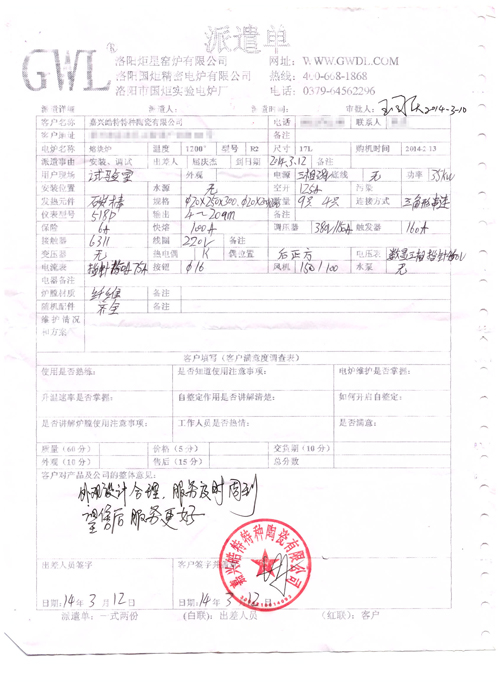 派遣单
GWL®
洛阳炬星窑炉有限公司 网址：WWW.GWDL.COM
洛阳国炬精密电炉有限公司 热线：400-668-1868
洛阳市国炬实验电炉厂 电话：0379-64562296
派遣详细 派遣人： 派遣时间： 审批人： 2014-3-10
客户名称 嘉兴皓特特种陶瓷有限公司 电话 联系人
客户地址 备注
电炉名称 箱式炉 温度 1700° 型号 R2 尺寸 17L 购机时间 2014-2-13
派遣事由 安装、调试 出差人 屈庆杰 到日期 2014.3.12 备注
用户现场 试验室 外观 电源 三相四线 功率 35KW
安装位置 水源 无 空开 125A 污染
发热元件 硅钼棒 规格 数量 连接方式
仪表型号 518P 输出 4~20mA
保险 6A 快熔 100A 调压器 触发器 160A
接触器 6311 线圈 220V 备注
变压器 无 热电偶 K 偶位置 后正方 电压表
电流表 指针 75A 按钮 φ16 风机 150/100 水泵 无
电器备注
炉膛材质 纤维 备注
随机配件 齐全 备注
维护情况
和方案
客户填写（客户满意度调查表）
使用是否熟练： 是否知道使用注意事项： 电炉维护是否掌握：
升温速率是否掌握： 自整定作用是否讲解清楚： 如何开启自整定：
是否讲解炉膛使用注意事项： 工作人员是否热情： 是否烘壶：
质量（60分） 价格（5分） 交货期（10分）
外观（10分） 售后（15分） 总分数
客户对产品及公司的整体意见：
外观设计合理，服务及时周到
望售后服务更好
嘉兴皓特特种陶瓷有限公司
出差人员签字 客户签字并盖章
日期：14年3月12日 日期：14年3月12日
派遣单：一式两份 （白联）：出差人员 （红联）：客户